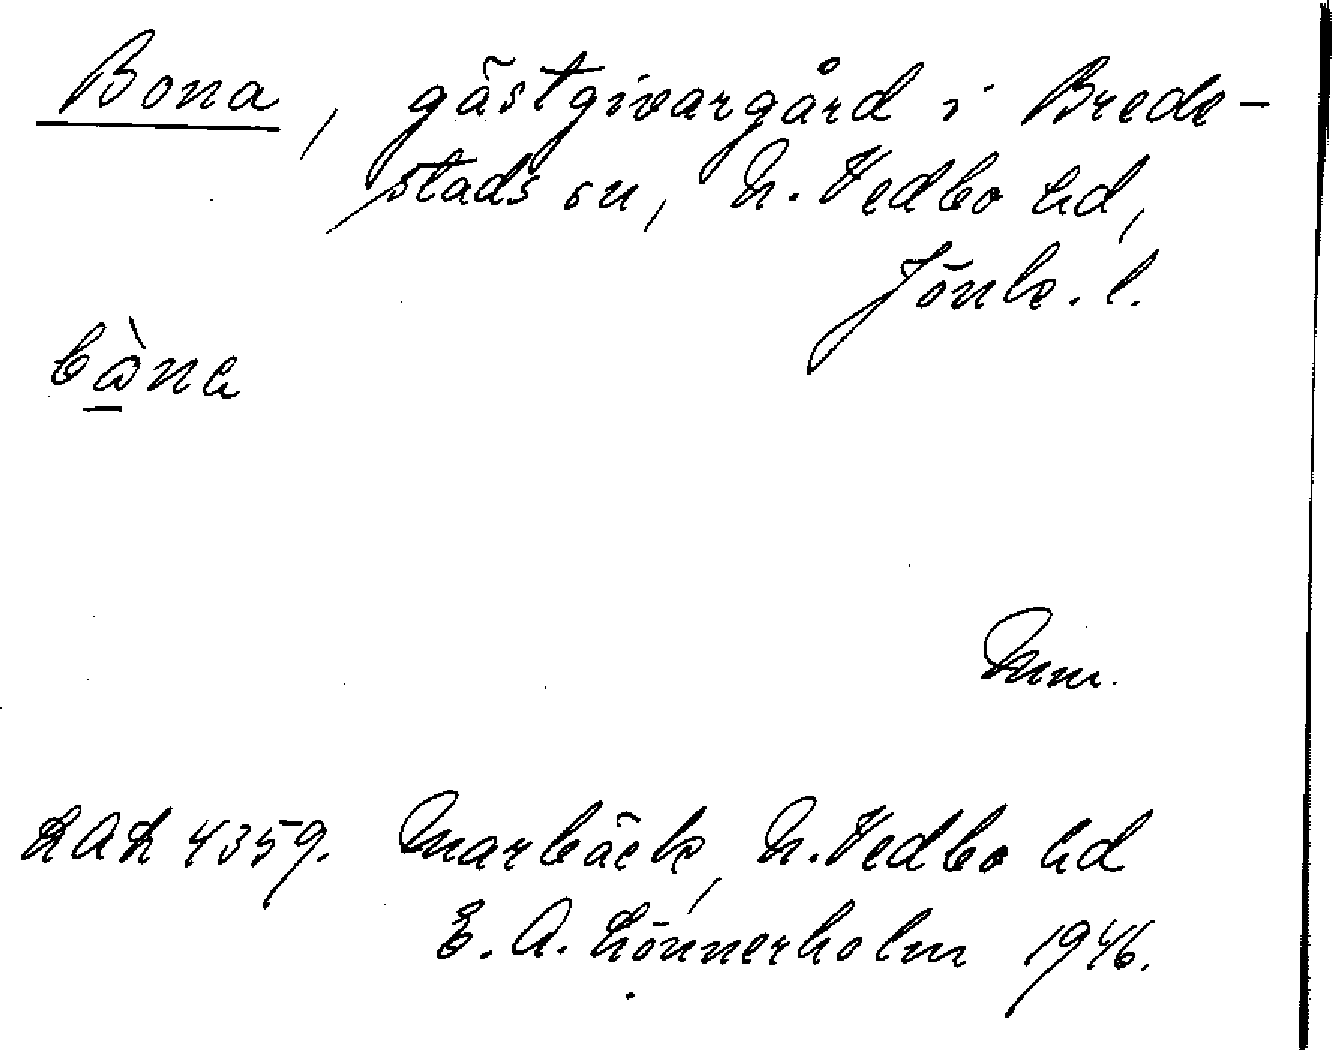 Bona, gästgivargård i Brede-
stads sn, N. Vedbo hd,
Jönk. l.
bὼna
Mm.
LAL 4359. Marbäck, N. Vedbo hd
E. A. Lönnerholm 1946.